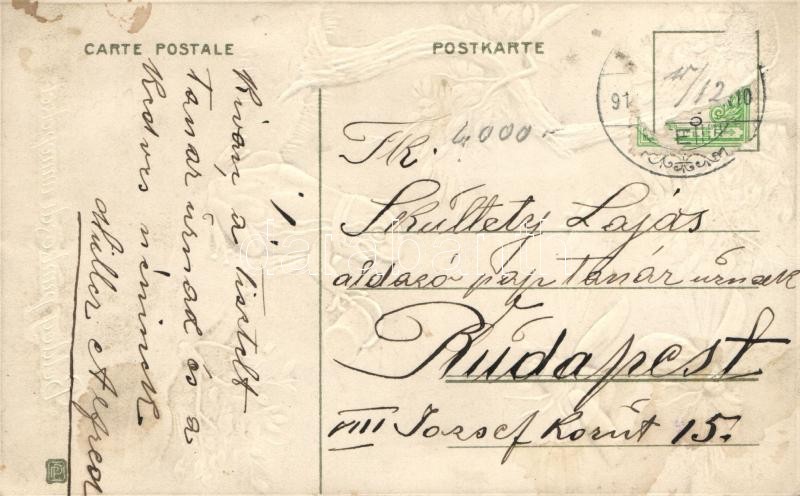 CARTE POSTALE
POSTKARTE
Kíván, a tisztelt
Tanár úrnak és a
Kedves néninek.
Müller Alfred
IV/12
91
4000.-
Tk.
Skultéty Lajós
áldozó pap Tanár úrnak
Budapest
VIII József Korút 15.